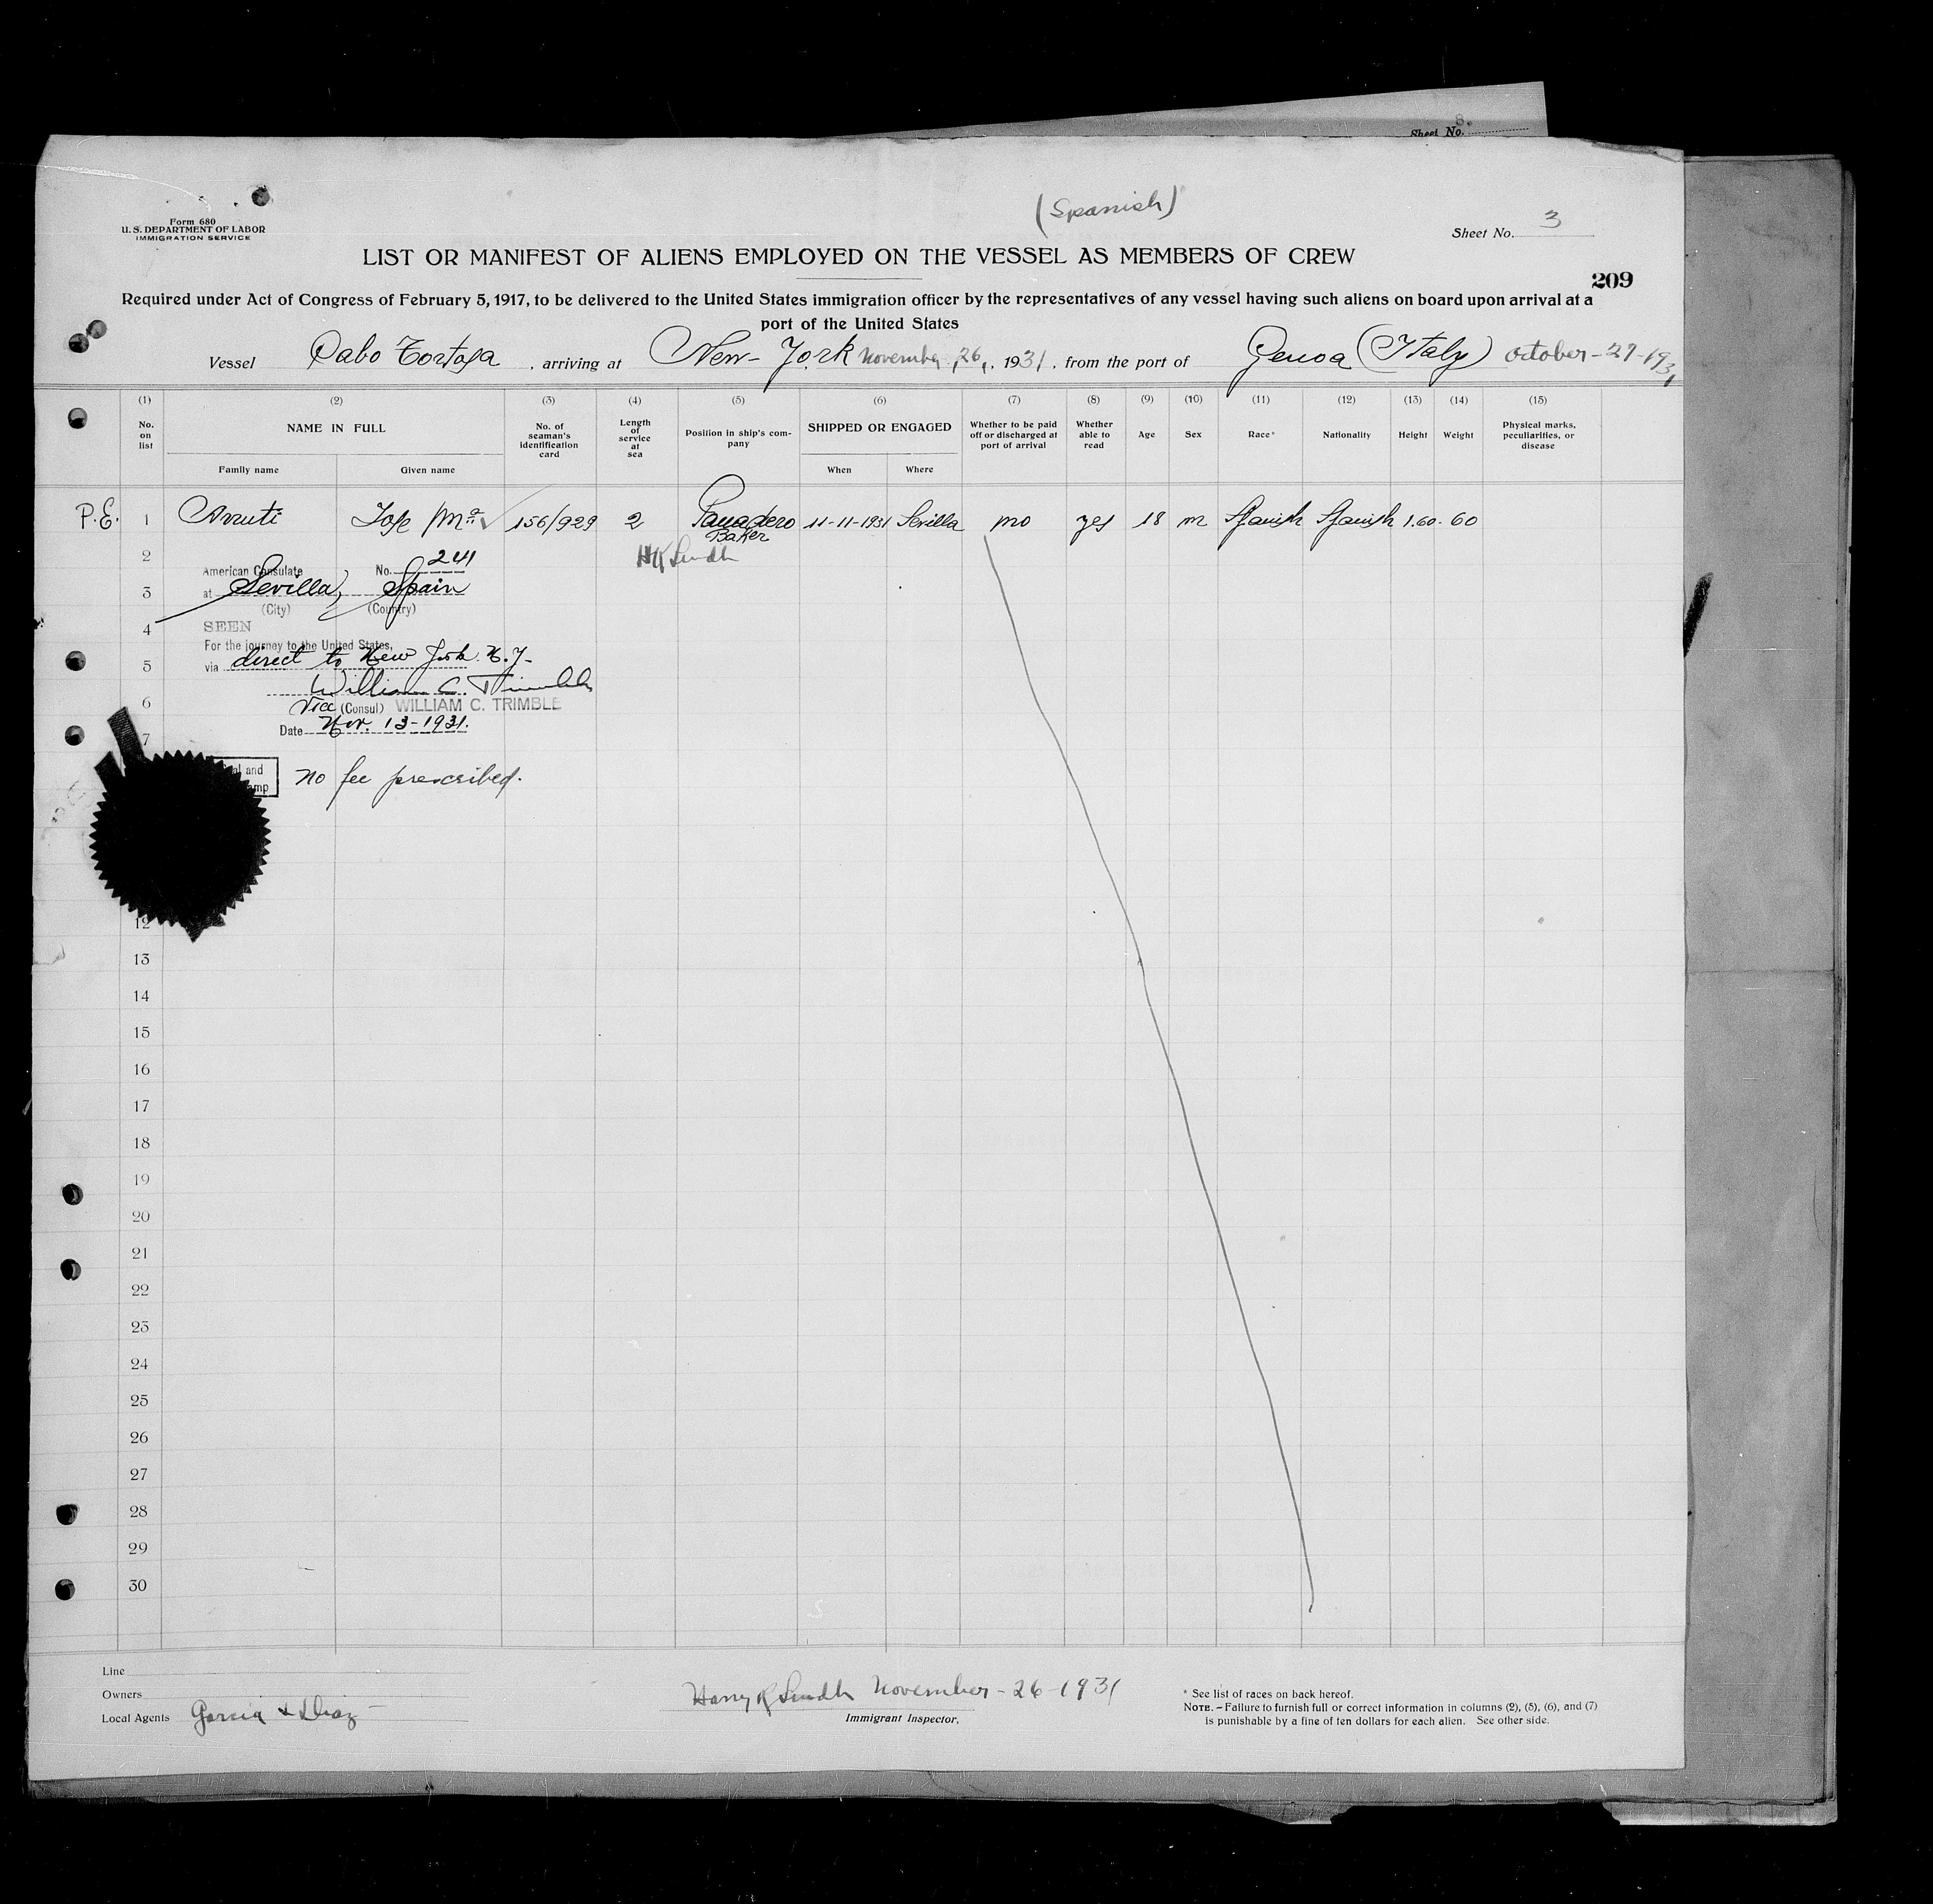 8.
Sheet No.
(Spanish)
Form 680
U. S. DEPARTMENT OF LABOR
IMMIGRATION SERVICE
Sheet No. 3
LIST OR MANIFEST OF ALIENS EMPLOYED ON THE VESSEL AS MEMBERS OF CREW
209
Required under Act of Congress of February 5, 1917, to be delivered to the United States immigration officer by the representatives of any vessel having such aliens on board upon arrival at a
port of the United States
Vessel Cabo Tortosa, arriving at New-York November 26, 1931, from the port of Genoa (Italy) October-27-1931
(1) (2) (3) (4) (5) (6) (7) (8) (9) (10) (11) (12) (13) (14) (15)
No. on list NAME IN FULL No. of seaman's identification card Length of service at sea Position in ship's company SHIPPED OR ENGAGED Whether to be paid off or discharged at port of arrival Whether able to read Age Sex Race* Nationality Height Weight Physical marks, peculiarities, or disease
Family name Given name When Where
P.E. 1 Arruti Jose Mª 156/929 2 Panadero 11-11-1931 Sevilla no yes 18 m Spanish Spanish 1.60. 60
Baker
2
American Consulate No. 241
3
at Sevilla, Spain
(City) (Country)
4
SEEN
For the journey to the United States,
5
via direct to New York N.Y-
William C. Trimble
6
Vice (Consul) WILLIAM C. TRIMBLE
Date Nov. 13-1931.
7
al and
mp
no fee prescribed.
12
13
14
15
16
17
18
19
20
21
22
23
24
25
26
27
28
29
30
Line
Owners
Local Agents Garcia & Diaz
Harry R Lindh November-26-1931
Immigrant Inspector.
* See list of races on back hereof.
NOTE.–Failure to furnish full or correct information in columns (2), (5), (6), and (7)
is punishable by a fine of ten dollars for each alien. See other side.